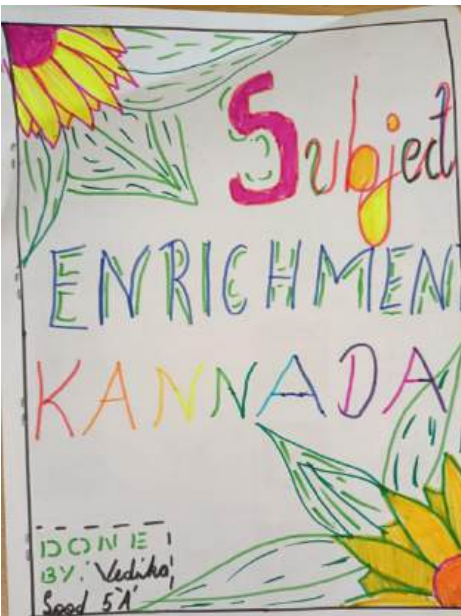 Subject
ENRICHMENT
KANNADA
DONE
BY: Vedika
Sood 5'A'